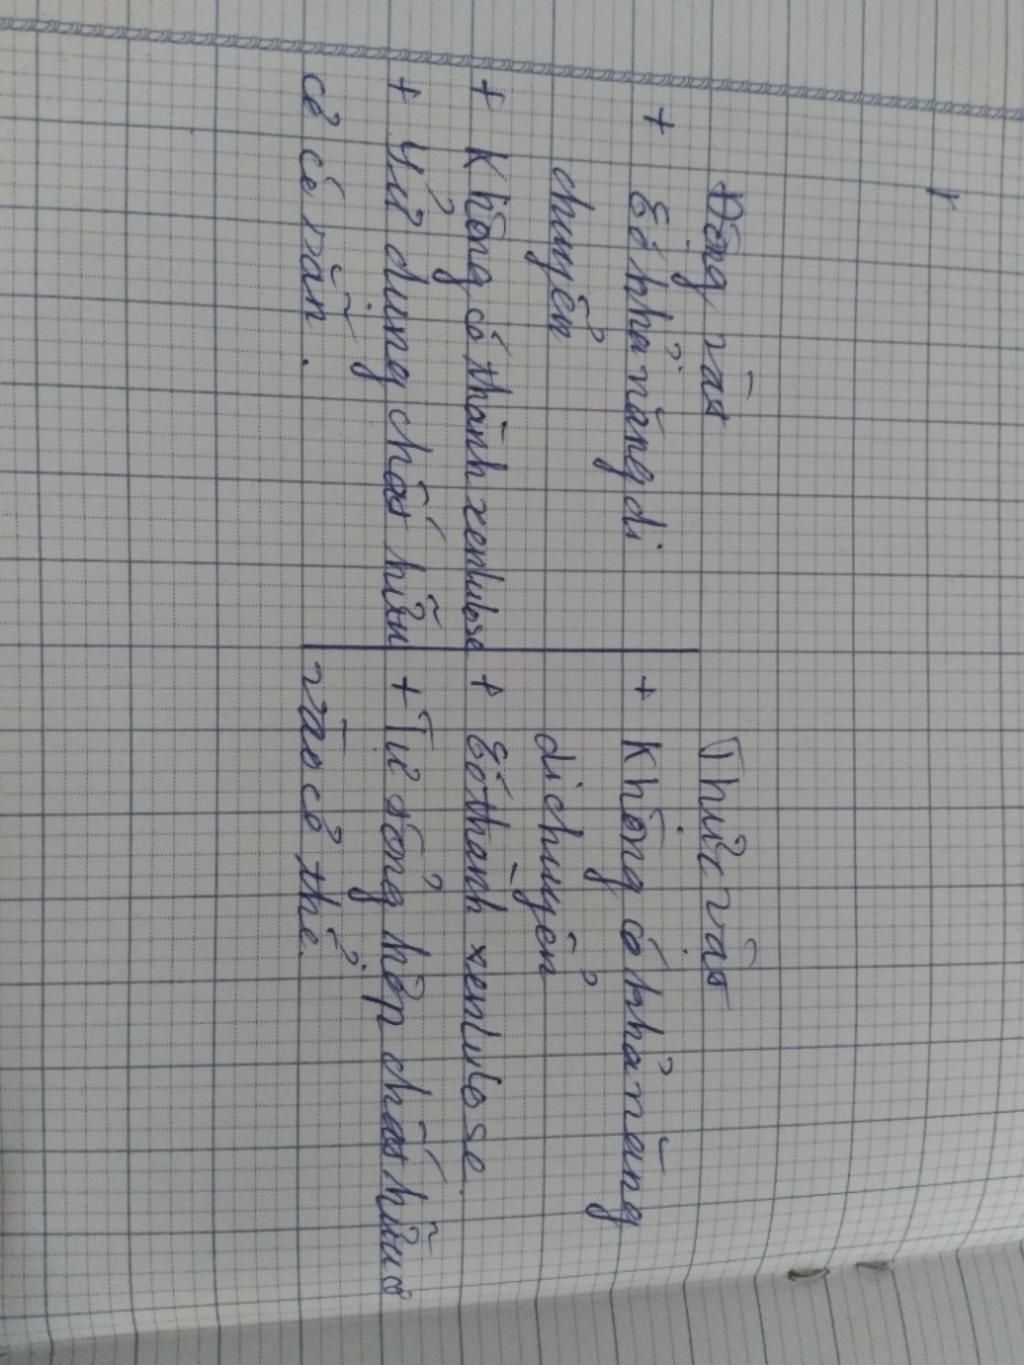 Động vật
+ Có khả năng di
chuyển
+ Không có thành xenlulose
+ Sử dụng chất hữu
cơ có sẵn.
Thực vật
+ Không có khả năng
di chuyển
+ Có thành xenlulose.
+ Tự tổng hợp chất hữu cơ
vào cơ thể.